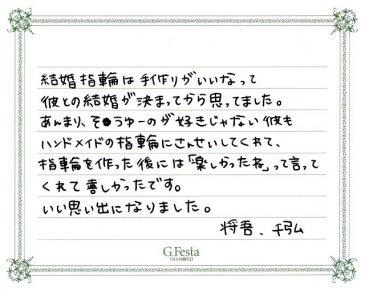 結婚指輪は手作りがいいなって
彼との結婚が決まってから思ってました。
あんまり、そうゆーのが好きじゃない彼も
ハンドメイドの指輪にさんせいしてくれて、
指輪を作った後には「楽しかったね」って言って
くれて喜しかったです。
いい思い出になりました。
将吾、千弘
G.Festa
DIAMOND